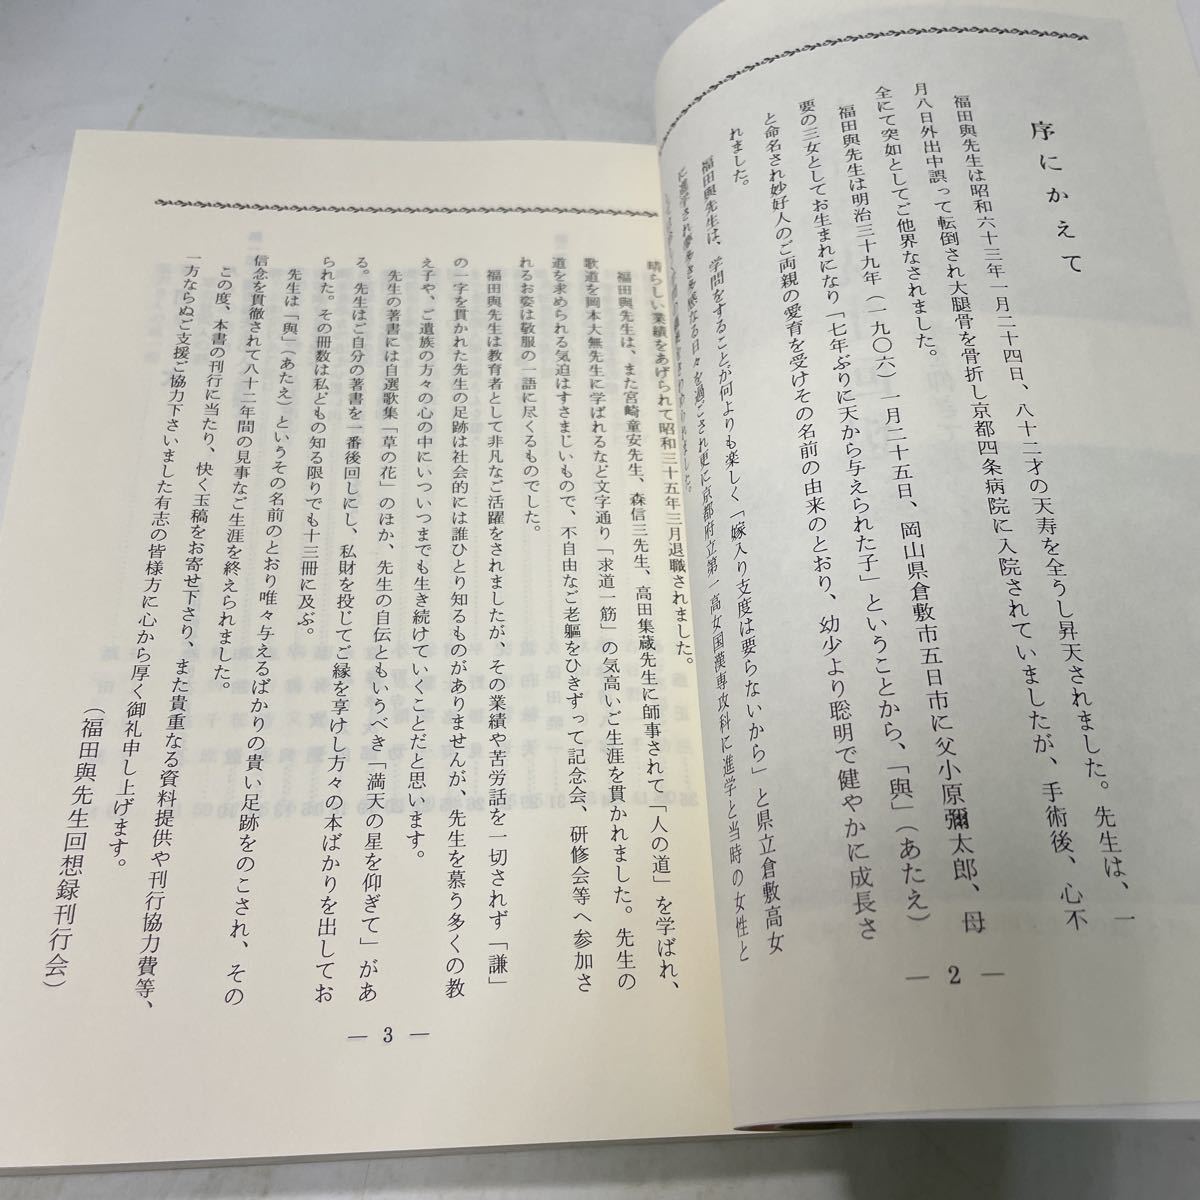 序にかえて
福田與先生は昭和六十三年一月二十四日、八十二才の天寿を全うし昇天されました。先生は、一
月八日外出中誤って転倒され大腿骨を骨折し京都四条病院に入院されていましたが、手術後、心不
全にて突如としてご他界なされました。
福田與先生は明治三十九年（一九〇六）一月二十五日、岡山県倉敷市五日市に父小原彌太郎、母
要の三女としてお生まれになり「七年ぶりに天から与えられた子」ということから、「與」（あたえ）
と命名され妙好人のご両親の愛育を受けその名前の由来のとおり、幼少より聡明で健やかに成長さ
れました。
福田與先生は、学問をすることが何よりも楽しく「嫁入り支度は要らないから」と県立倉敷高女
に進学され夢多き多感なる日々を過ごされ更に京都府立第一高女国漢専攻科に進学と当時の女性と
― 2 ―
晴らしい業績をあげられて昭和三十五年三月退職されました。
福田與先生は、また宮崎童安先生、森信三先生、高田集蔵先生に師事されて「人の道」を学ばれ、
歌道を岡本大無先生に学ばれるなど文字通り「求道一筋」の気高いご生涯を貫かれました。先生の
道を求められる気迫はすさまじいもので、不自由なご老軀をひきずって記念会、研修会等へ参加さ
れるお姿は敬服の一語に尽くるものでした。
福田與先生は教育者として非凡なご活躍をされましたが、その業績や苦労話を一切されず「謙」
の一字を貫かれた先生の足跡は社会的には誰ひとり知るものがありませんが、先生を慕う多くの教
え子や、ご遺族の方々の心の中にいついつまでも生き続けていくことだと思います。
先生の著書には自選歌集「草の花」のほか、先生の自伝ともいうべき「満天の星を仰ぎて」があ
る。先生はご自分の著書を一番後回しにし、私財を投じてご縁を享けし方々の本ばかりを出してお
られた。その冊数は私どもの知る限りでも十三冊に及ぶ。
先生は「與」（あたえ）というその名前のとおり唯々与えるばかりの貴い足跡をのこされ、その
信念を貫徹されて八十二年間の見事なご生涯を終えられました。
この度、本書の刊行に当たり、快く玉稿をお寄せ下さり、また貴重なる資料提供や刊行協力費等、
一方ならぬご支援ご協力下さいました有志の皆様方に心から厚く御礼申し上げます。
（福田與先生回想録刊行会）
― 3 ―